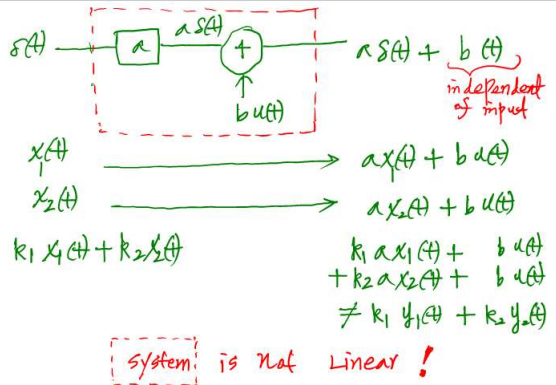 aδ(t)
δ(t) a + aδ(t) + b (t)
b u(t)
independent
of input
x₁(t) ax₁(t) + b u(t)
x₂(t) ax₂(t) + b u(t)
k₁ x₁(t) + k₂ x₂(t) k₁ ax₁(t) + b u(t)
+ k₂ ax₂(t) + b u(t)
≠ k₁ y₁(t) + k₂ y₂(t)
system is not Linear !